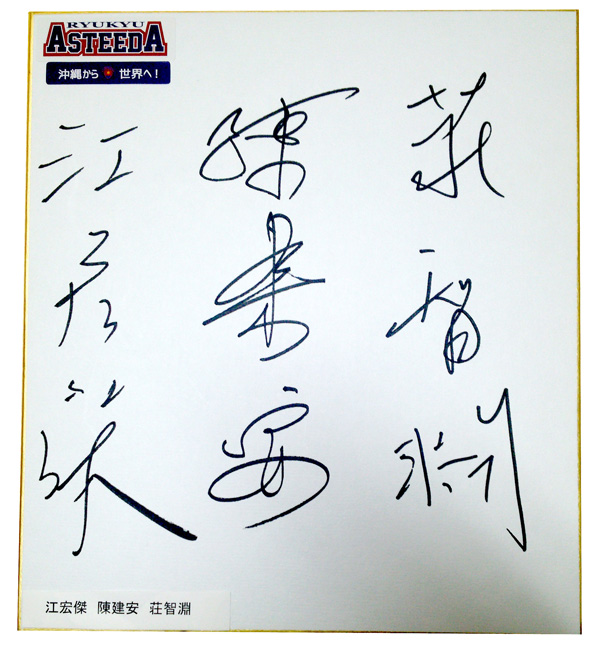 RYUKYU
ASTEEDA
沖縄から 世界へ!
莊智淵
陳建安
江宏傑
江宏傑 陳建安 荘智淵